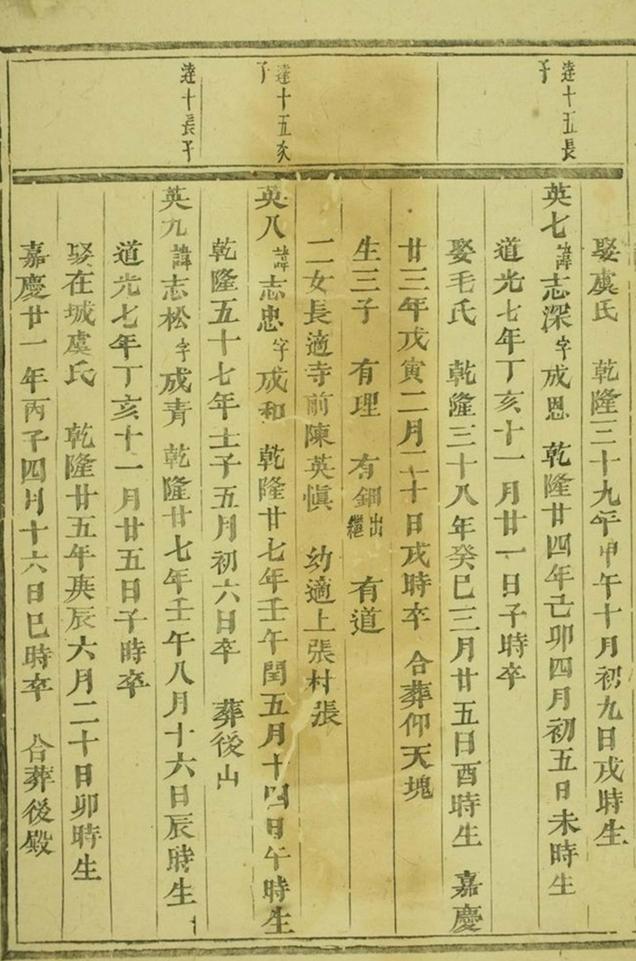 娶虞氏 乾隆三十九年甲午十月初九日戌時生
達十五長子
英七諱志深字成恩 乾隆廿四年己卯四月初五日未時生
道光七年丁亥十一月廿一日子時卒
娶毛氏 乾隆三十八年癸巳三月廿五日酉時生 嘉慶
廿三年戊寅二月二十日戌時卒 合葬仰天塊
生三子 有理 有鋼出繼 有道
二女長適寺前陳英慎 幼適上張村張
達十五次子
英八諱志忠字成和 乾隆廿七年壬午閏五月十四日午時生
乾隆五十七年壬子五月初六日卒 葬後山
達十長子
英九諱志松字成青 乾隆廿七年壬午八月十六日辰時生
道光七年丁亥十一月廿五日子時卒
娶在城虞氏 乾隆廿五年庚辰六月二十日卯時生
嘉慶廿一年丙子四月十六日巳時卒 合葬後殿